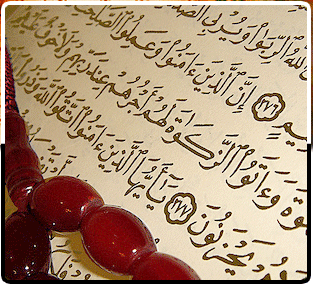 ٱللَّهُ ٱلرِّبَوٰا۟ وَيُرْبِى
٢٧٦ إِنَّ ٱلَّذِينَ ءَامَنُوا۟ وَعَمِلُوا۟
وَءَاتَوُا۟ ٱلزَّكَوٰةَ لَهُمْ أَجْرُهُمْ عِندَ رَبِّهِمْ وَلَا خَوْفٌ
يَحْزَنُونَ ٢٧٧ يَـٰٓأَيُّهَا ٱلَّذِينَ ءَامَنُوا۟ ٱتَّقُوا۟ ٱللَّهَ وَذَرُوا۟